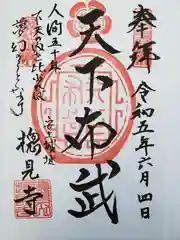 奉拝
令和五年六月四日
天下布武
人間五十年
下天の内を比ふれば
夢幻の
安土城址
摠見寺